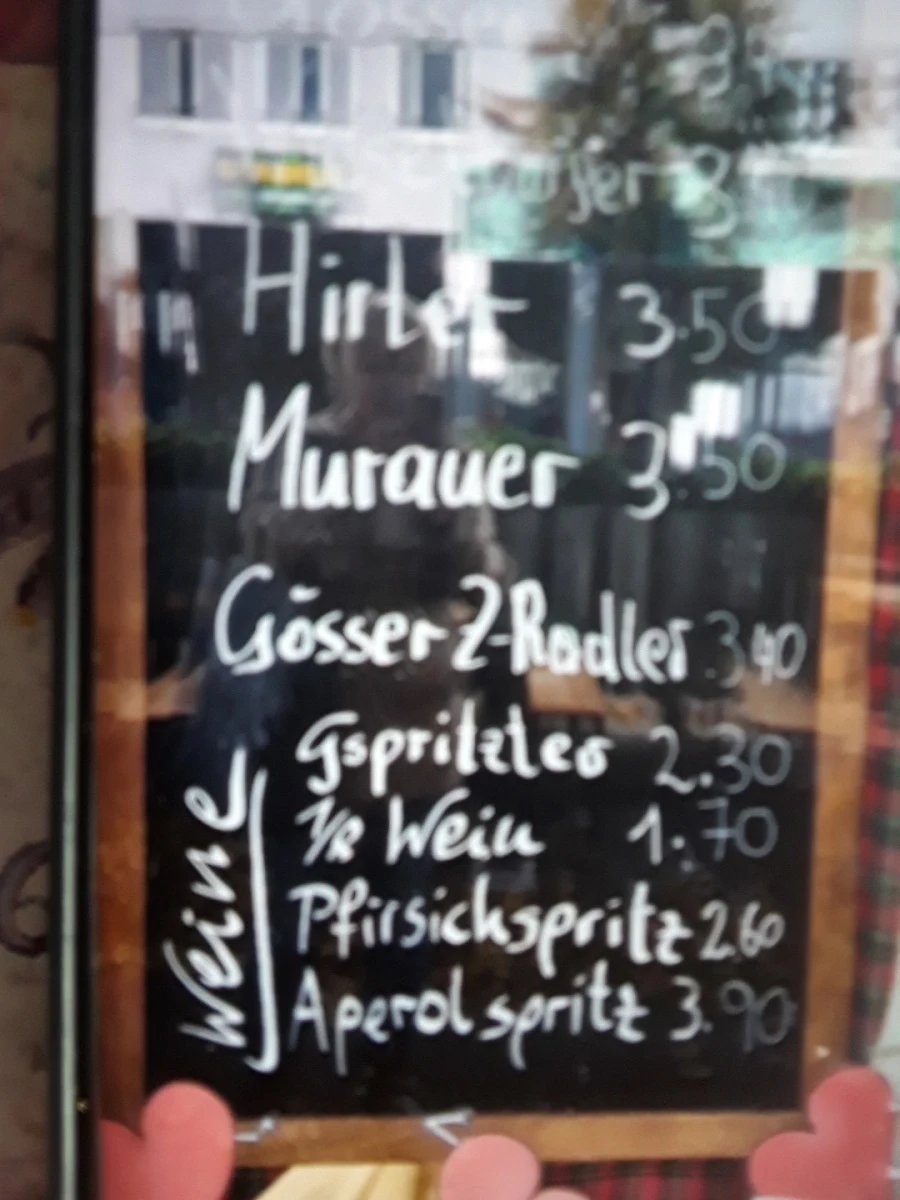 Hirter 3.50
Murauer 3.50
Gösser Z-Radler 3.40
Weine
Gspritzter 2.30
1/8 Wein 1.70
Pfirsichspritz 2.60
Aperol spritz 3.90